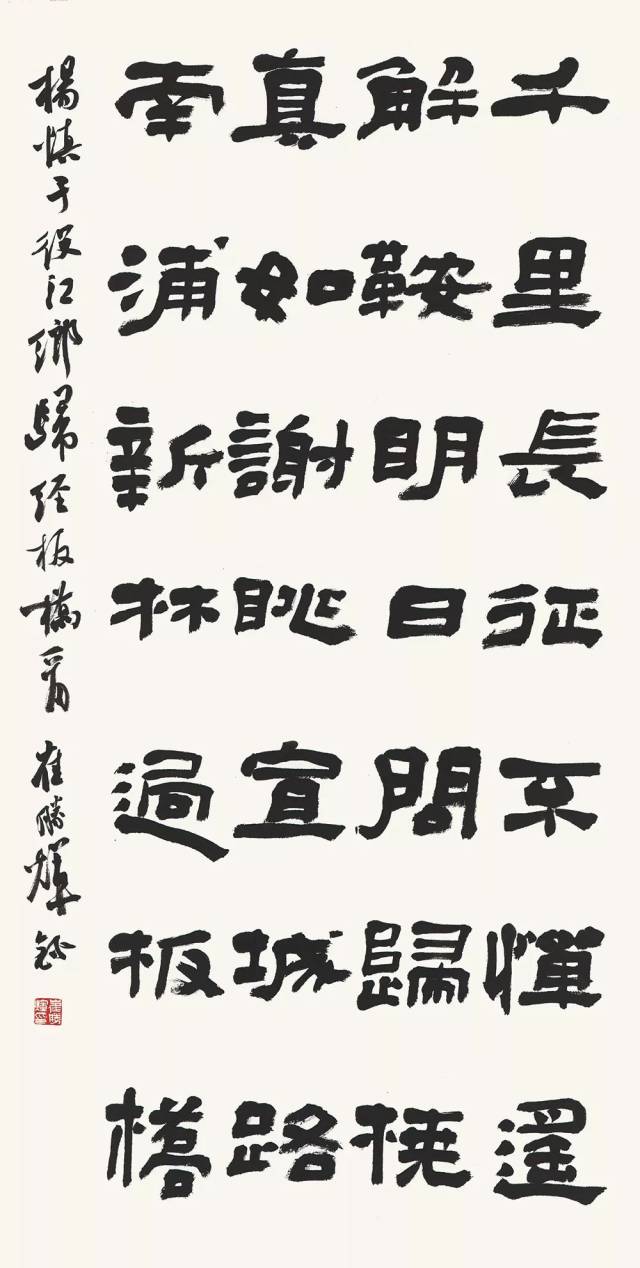 千里長征不憚遥
解鞍明日問歸橈
真如謝眺宣城路
南浦新林過板橋
楊慎于役江鄉歸經板橋首 崔勝輝錄
崔勝輝印